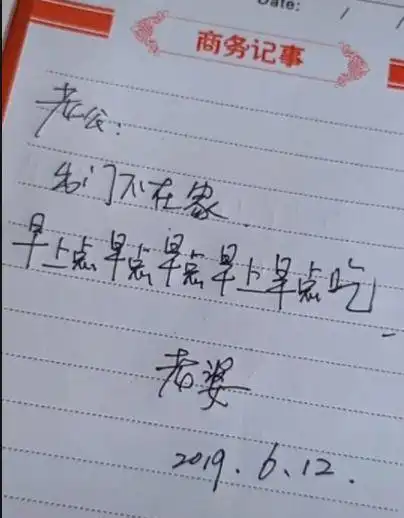 Date: / /
商务记事
老公:
我们不在家
早上点早点早点早上早点吃
老婆
2019.6.12.